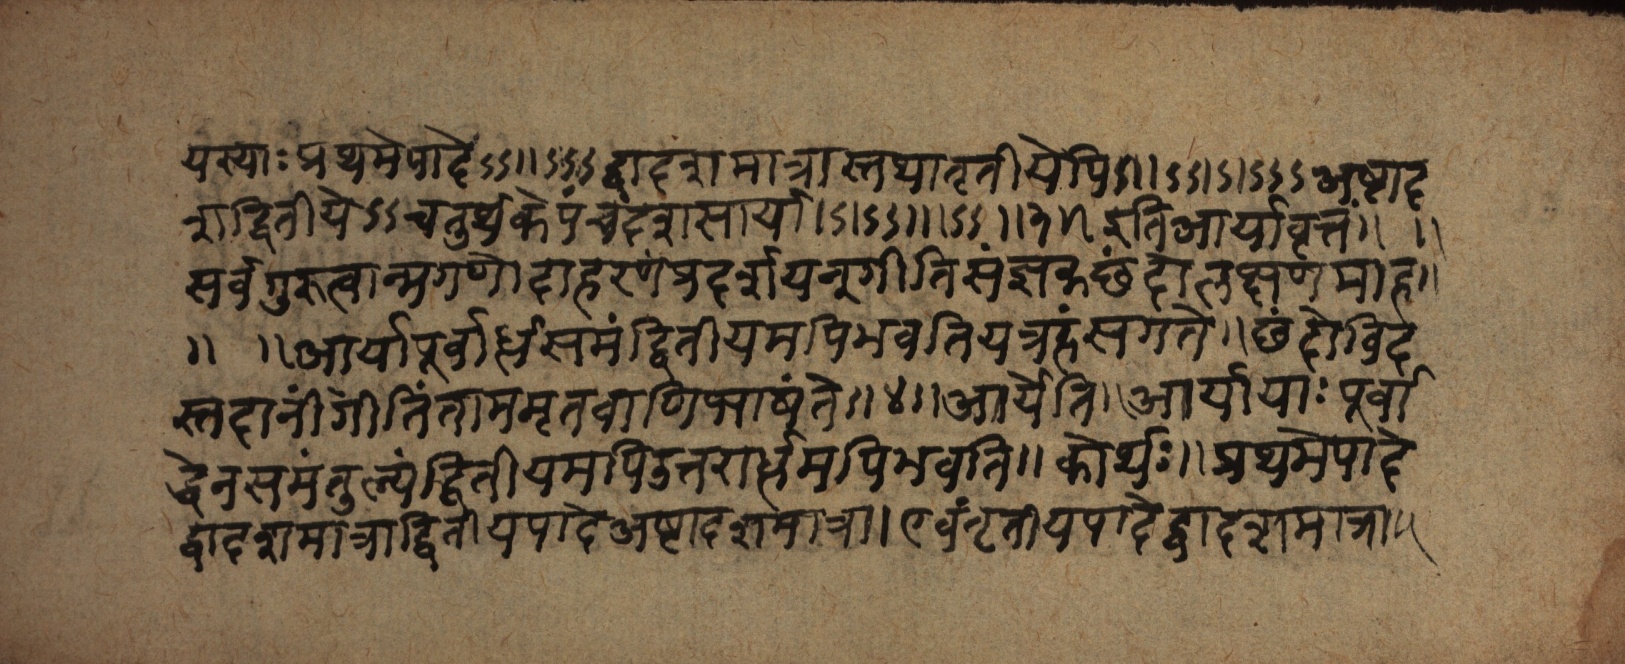 यस्याः प्रथमेपादेऽऽ॥ऽऽऽद्वादशमात्रास्तथातृतीयेपिऽ॥।ऽऽ।ऽ।ऽऽऽअष्टाद
शद्वितीयेऽऽचतुर्थकेपंचदशसार्या।ऽ।ऽऽ॥।ऽऽ॥३॥इतिआर्यावृत्तं॥ ॥
सर्वगुरुत्वान्मगणोदाहरणंप्रदर्शायनुगीतिसंज्ञकछंदोलक्षणमाह॥
॥ ॥आर्यापूर्वार्द्धसमंद्वितीयमपिभवतियत्रहंसगते॥छंदोविद
स्तदानींगीतिंताममृतवाणिभाषंते॥४॥आर्येति॥आर्यायाः पूर्वा
र्द्धेनसमंतुल्यंद्वितीयमपिउत्तरार्द्धमपिभवति॥कोर्थः॥प्रथमेपादे
द्वादशमात्राद्वितीयपादेअष्टादशमात्रा।एवंतृतीयपादेद्वादशमात्रा॥